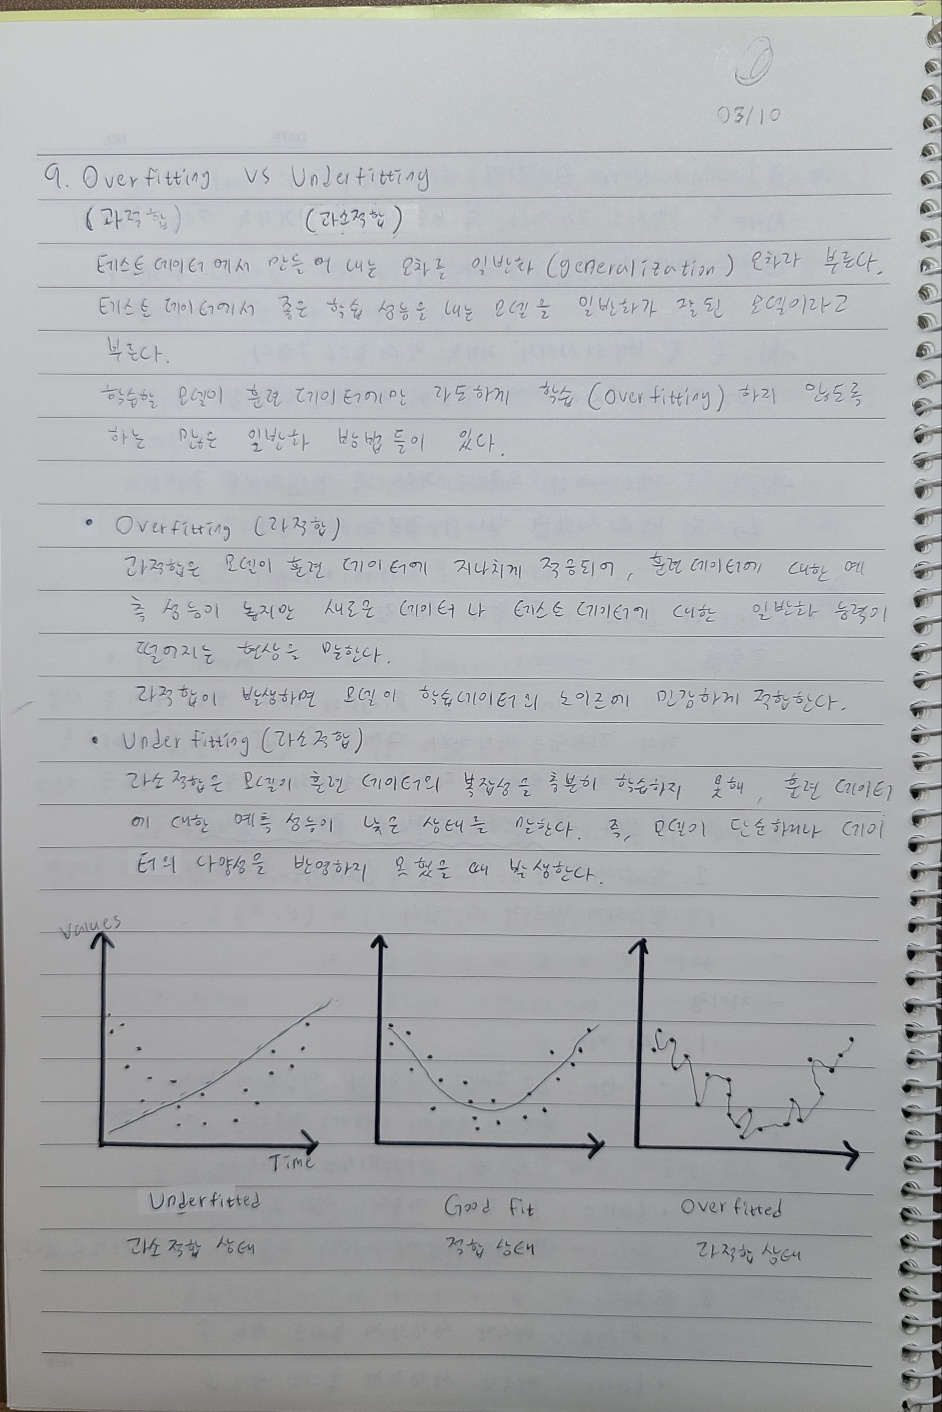 03/10
9. Overfitting vs Underfitting
(과적합) (과소적합)
테스트 데이터에서 만들어 내는 오차를 일반화 (generalization) 오차라 부른다.
테스트 데이터에서 좋은 학습 성능을 내는 모델을 일반화가 잘 된 모델이라고
부른다.
학습할 모델이 훈련 데이터에만 과도하게 학습 (Overfitting) 하지 않도록
하는 많은 일반화 방법들이 있다.
• Overfitting (과적합)
과적합은 모델이 훈련 데이터에 지나치게 적응되어, 훈련 데이터에 대한 예
측 성능이 높지만 새로운 데이터나 테스트 데이터에 대한 일반화 능력이
떨어지는 현상을 말한다.
과적합이 발생하면 모델이 학습데이터의 노이즈에 민감하게 적합한다.
• Underfitting (과소적합)
과소적합은 모델이 훈련 데이터의 복잡성을 충분히 학습하지 못해, 훈련 데이터
에 대한 예측 성능이 낮은 상태를 말한다. 즉, 모델이 단순하거나 데이
터의 다양성을 반영하지 못했을 때 발생한다.
Values
Time
Underfitted Good Fit Overfitted
과소적합 상태 적합 상태 과적합 상태